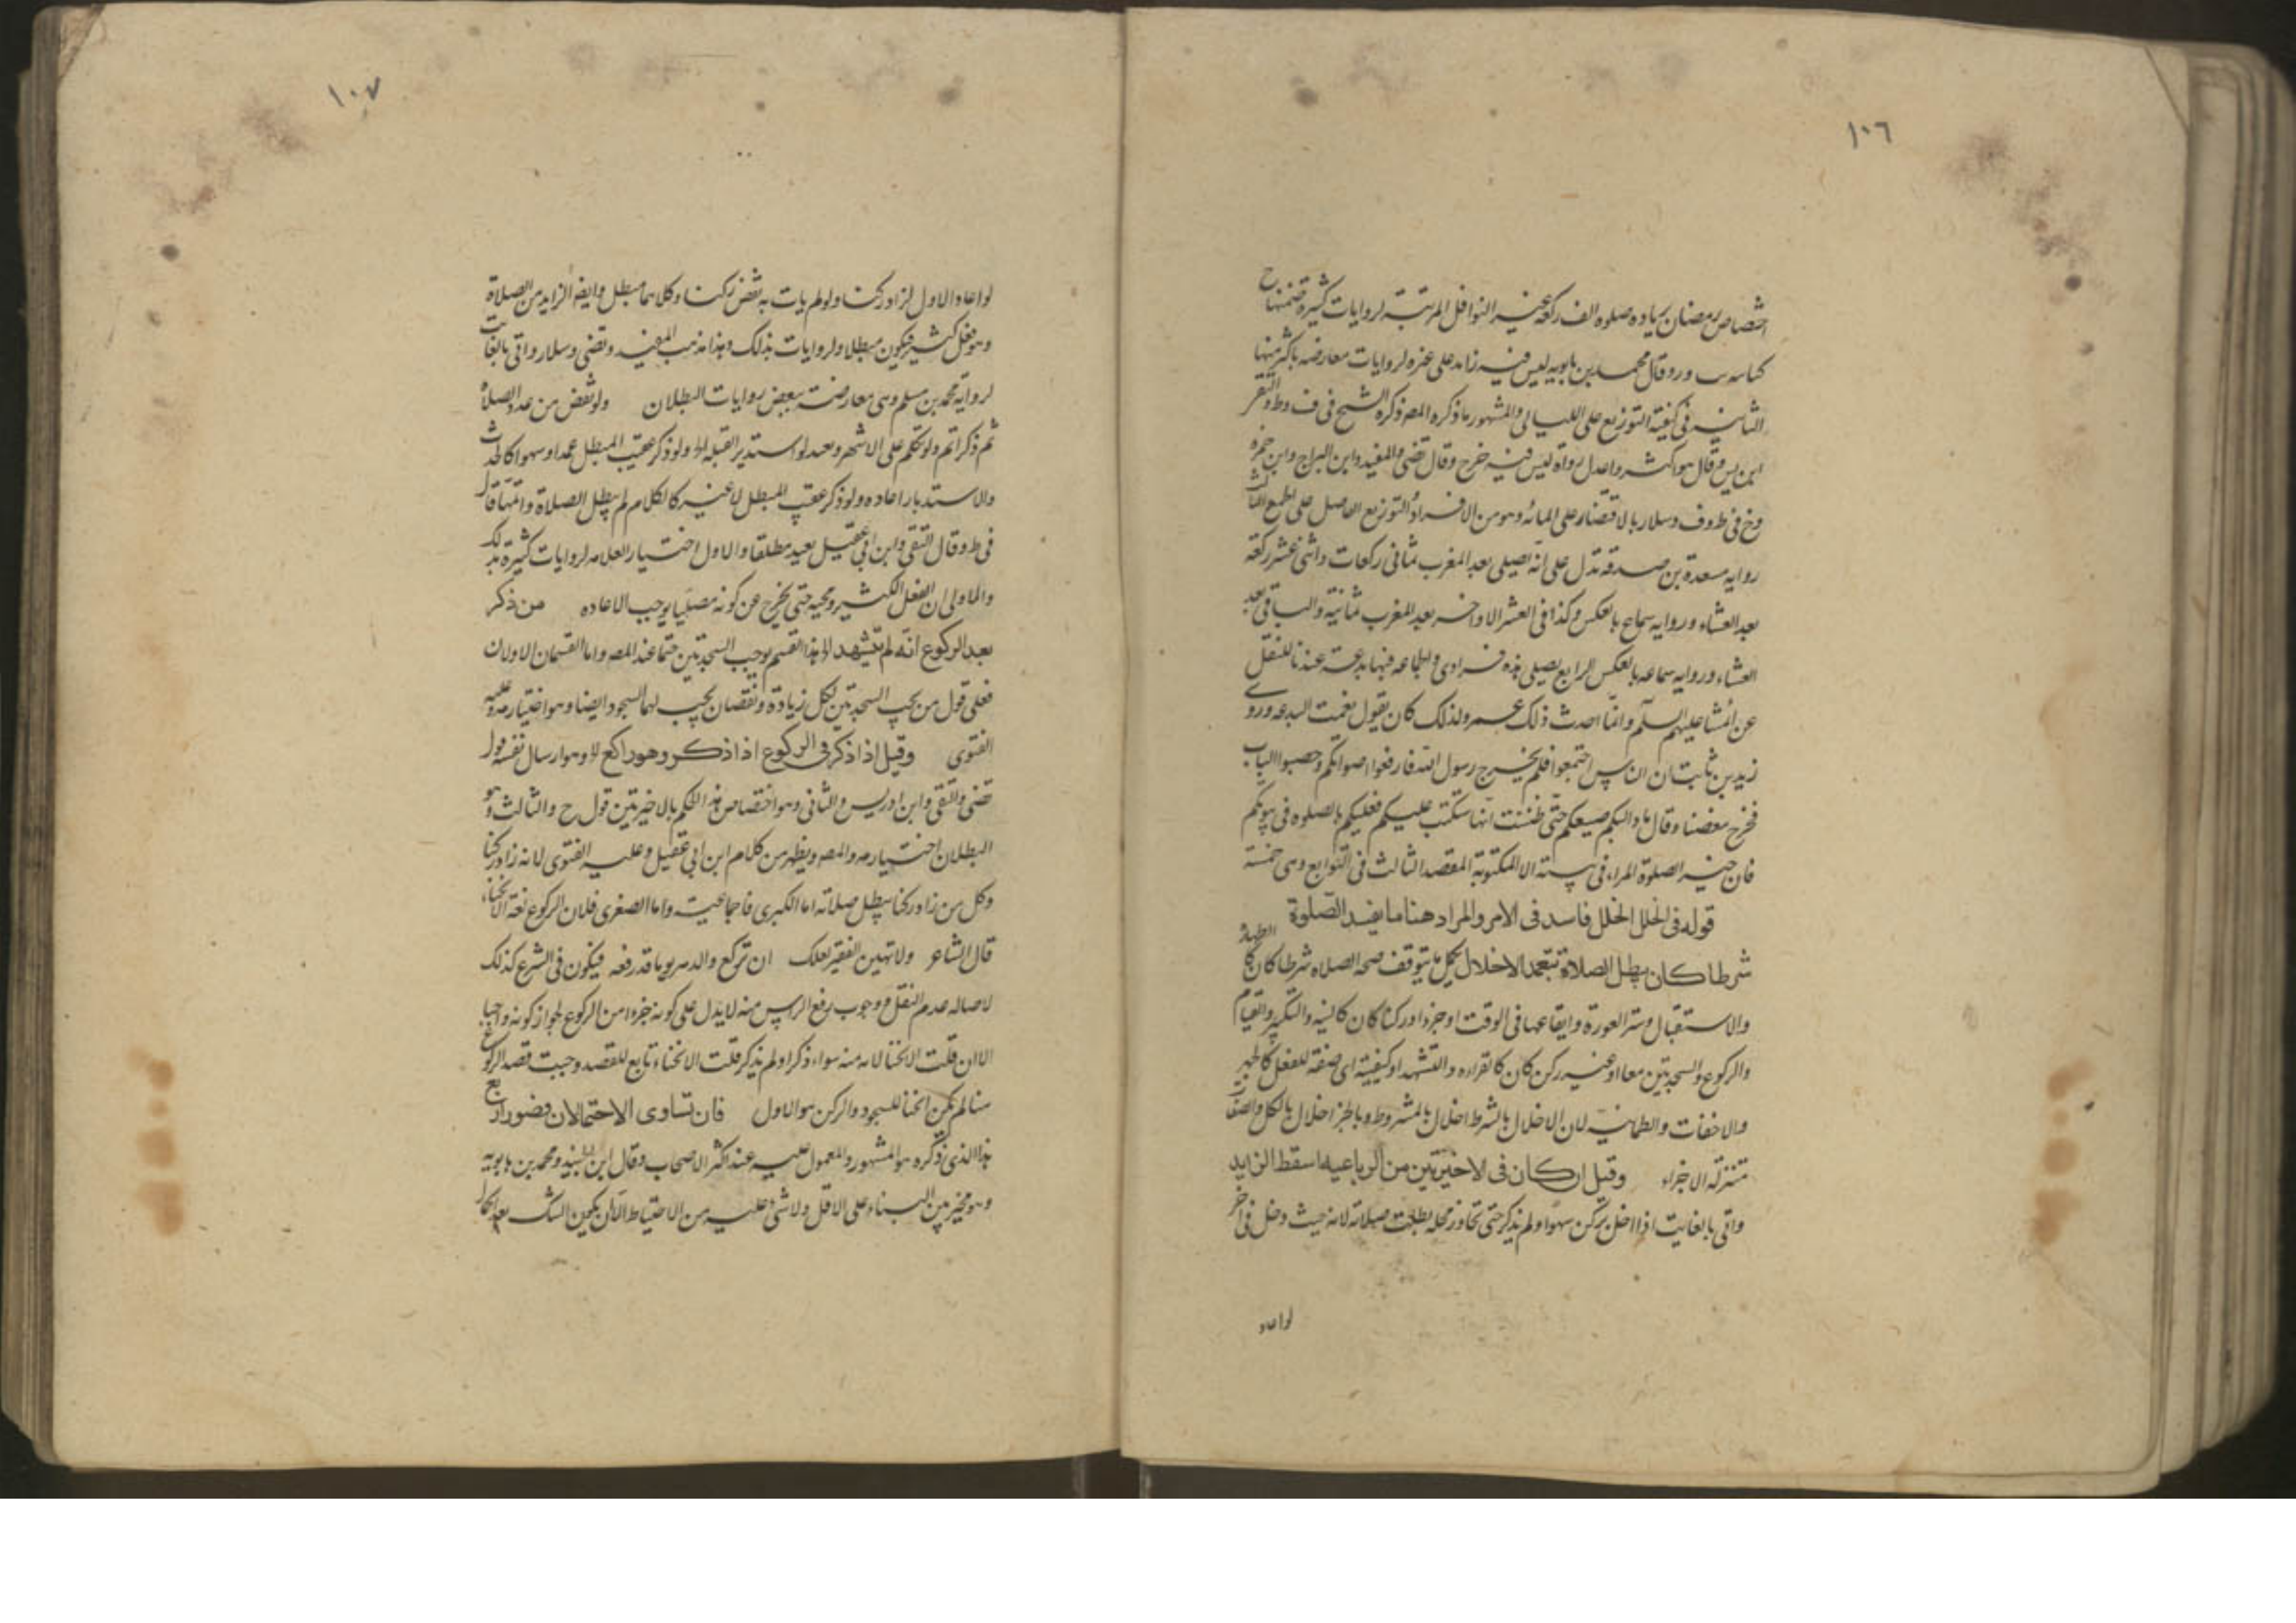 ١٠٦
اختصاص رمضان بزياده صلوه الف ركعة غير النوافل المرتبة لروايات كثيرة تضمنها ح
كتابيه ب ور وقال محمد بن بابويه ليس فيه زايد على غيره لروايات معارضه باكثر منها
الثانية في كيفية التوزيع على الليالي والمشهور ما ذكره المص ذكره الشيخ في ف وط والتقى
ابن يس وقال هو اكثر واعدل رواة ليس فيه خرج وقال تضى والمفيد وابن البراج وابن حمزه
وخ في ط وف وسلار بالاقتصار على المائه وهو من الافراد والتوزيع الحاصل على الجمع الثالث
رواية مسعدة بن صدقه تدل على انه يصلى بعد المغرب ثماني ركعات واثنى عشر ركعة
بعد العشاء ورواية سماعه بالعكس وكذا في العشر الاواخر بعد المغرب ثمانية والباقي بعد
العشاء ورواية سماعه بالعكس الرابع يصلى هذه فرادى والجماعه فيها بدعة عندنا للنقل
عن ائمتنا عليهم السلم وانما احدث ذلك عمر ولذلك كان يقول نعمت البدعه وروى
زيد بن ثابت ان الناس اجتمعوا فلم يخرج رسول الله فارفعوا اصواتكم وحصبوا الباب
فخرج مغضبا وقال ما زال بكم صنيعكم حتى ظننت انها ستكتب عليكم فعليكم بالصلوه في بيوتكم
فان خير الصلوة المراء في بيته الا المكتوبة المقصد الثالث في التوابع وهي خمسة
قوله في الخلل الخلل فاسد في الامر والمراد هنا ما يفسد الصلوة
شرطا كان يبطل الصلاة بتعمد الاخلال بكل ما يتوقف صحه الصلاه شرطا كان كالطهارة
والاستقبال وستر العورة وايقاعها في الوقت او جزءا وركنا كان كالنيه والتكبير والقيام
والركوع والسجدتين معا او غير ركن كان كالقراءه والتشهد او كيفية اى صفة للفعل كالجهر
والاخفات والطمانينة لان الاخلال بالشرط اخلال بالمشروط وبالجزء اخلال بالكل والصفات
تنزلة الاجزاء وقيل ان كان في الاخيرتين من الرباعيه اسقط الزايد
واتى بالفايت اذا اخل بركن سهوا ولم يذكر حتى تجاوز محله بطلت صلاته لانه حيث دخل في اخر
لو اعاد
١٠٧
لو اعاد الاول لزاد ركنا ولو لم يات به نقص ركنا وكلاهما مبطل وايضا الزايد من الصلاة
وهو فعل كثير فيكون مبطلا ولروايات بذلك وهذا مذهب المفيد وتضى وسلار واتى بالفايت
لرواية محمد بن مسلم وهي معارضة ببعض روايات البطلان ولو نقص من عدد الصلاة
ثم ذكر اتم ولو تكلم على الاشهر ويعيد لو استدبر القبله اه ولو ذكر عقيب المبطل عمدا وسهوا كالحدث
والاستدبار اعاده ولو ذكر عقيب المبطل لا غير كالكلام لم يبطل الصلاة واتمها قال
في ط وقال التقى وابن ابى عقيل يعيد مطلقا والاول اختيار العلامه لروايات كثيرة بذلك
والاولى ان الفعل الكثير ومحيه حتى يخرج عن كونه مصليا يوجب الاعاده من ذكر
بعد الركوع انه لم يتشهد اه هذا القسم يوجب السجدتين حتما عند المص واما القسمان الاولان
فعلى قول من يجب السجدتين لكل زيادة ونقصان يجب لهما السجود ايضا وهو اختيار مه وعليه
الفتوى وقيل اذا ذكر في الركوع اذا ذكر وهو راكع اه وهو ارسال نفسه قول
تضى والتقى وابن ادريس والثانى وهو اختصاص هذا الحكم بالاخيرتين قول ح والثالث وهو
البطلان اختياره مه والمص ويظهر من كلام ابن ابى عقيل وعليه الفتوى لانه زاد ركنا
وكل من زاد ركنا يبطل صلاته اما الكبرى فاجماعية واما الصغرى فلان الركوع لغة الانحناء
قال الشاعر ولا تهين الفقير لعلك ان تركع والدهر يوما قد رفعه فيكون في الشرع كذلك
لاصاله عدم النقل ووجوب رفع الراس منه لا يدل على كونه جزءا من الركوع لجواز كونه واجبا
الا ان قلت الانحنا لا بد منه سواء ذكر او لم يذكر قلت الانحناء تابع للقصد وحيث قصد الركوع
هنا لم يكن انحنا للسجود والركن هو الاول فان تساوى الاحتمالان فصور اربع
هذا الذي ذكره هو المشهور والمعمول عليه عند اكثر الاصحاب وقال ابن الجنيد ومحمد بن بابويه
وهو مخير بين البناء على الاقل ولا شئ عليه من الاحتياط الا ان يكون الشك بعد اكمال